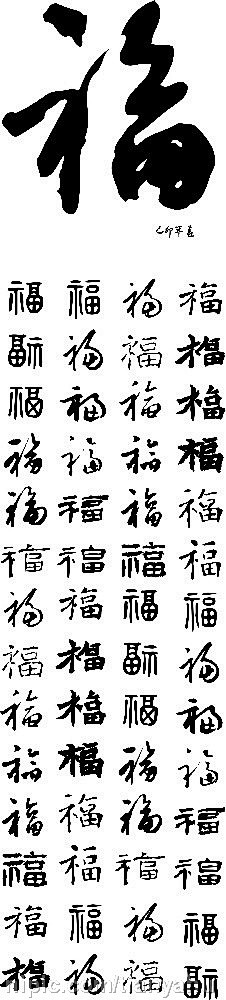 福
乙卯
福福福福
福福福福
福福福福
福福福福
福福福福
福福福福
福福福福
福福福福
福福福福
福福福福
福福福福
福福福福
福福福福
福福福福